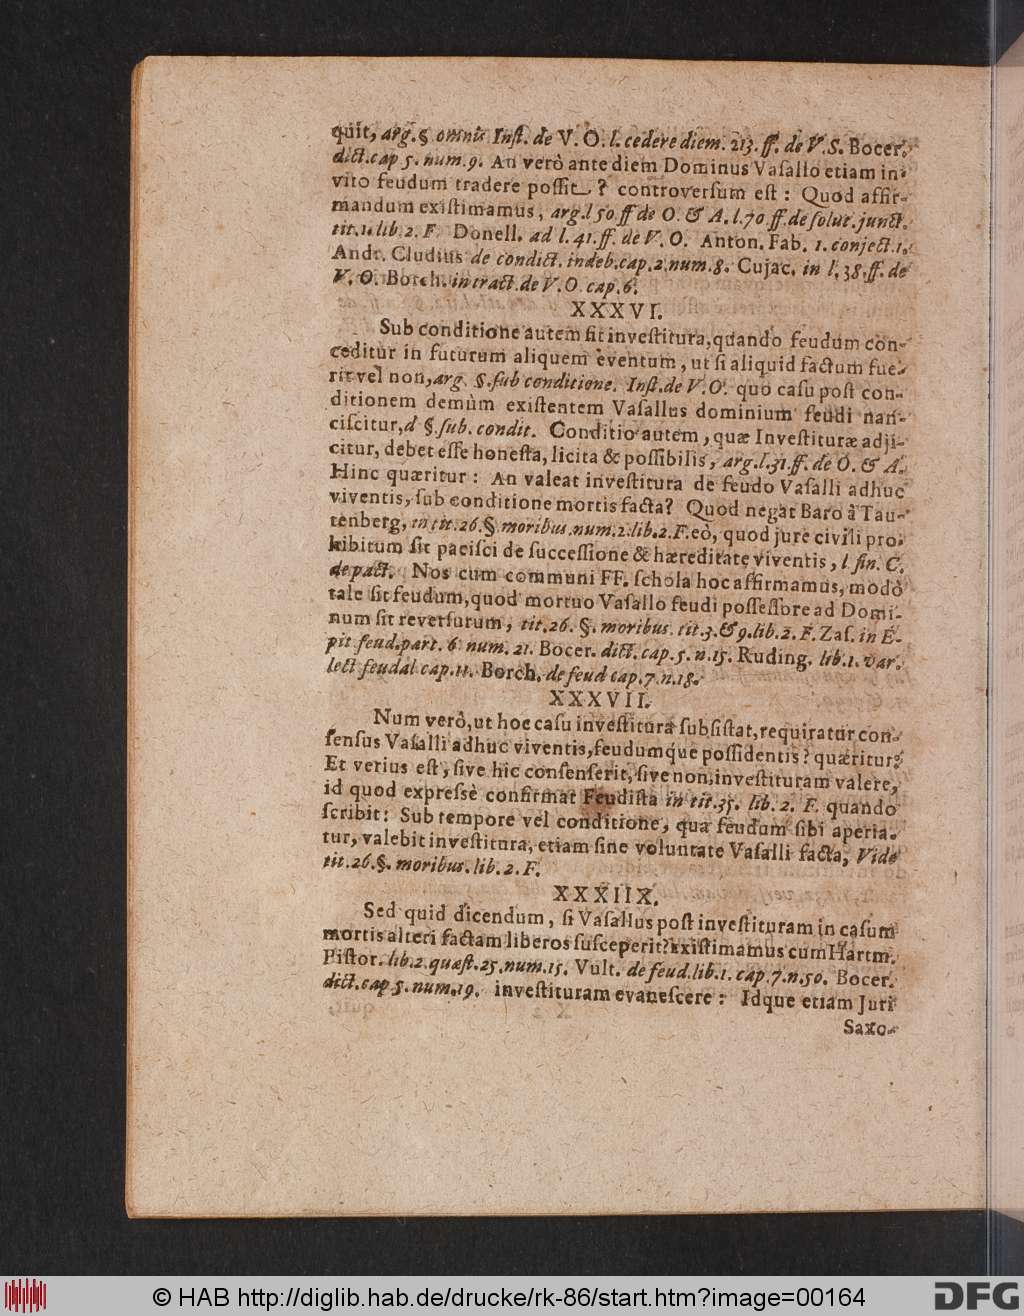 quit, arg. § omnis Inſt. de V. O. l. cedere diem. 213. ff. de V. S. Bocer.
dict. cap 5. num. 9. An verò ante diem Dominus Vaſallo etiam in-
vito feudum tradere poſſit? controverſum eſt: Quod affir-
mandum exiſtimamus, arg. l 50. ff de O. & A. l. 70 ff. de ſolut. junct.
tit. 1. lib. 2. F. Donell. ad l. 41. ff. de V. O. Anton. Fab. 1. conject. 1.
Andr. Cludius de condict. indeb. cap. 2. num. 8. Cujac. in l. 38. ff. de
V. O. Borch. in tract. de V. O. cap. 6.
XXXVI.
Sub conditione autem fit inveſtitura, quando feudum con-
ceditur in futurum aliquem eventum, ut ſi aliquid factum fue-
rit vel non, arg. §. ſub conditione. Inſt. de V. O. quo caſu poſt con-
ditionem demùm exiſtentem Vaſallus dominium feudi nan-
ciſcitur, d §. ſub. condit. Conditio autem, quæ Inveſtituræ adji-
citur, debet eſſe honeſta, licita & poſſibilis, arg. l. 31. ff. de O. & A.
Hinc quæritur: An valeat inveſtitura de feudo Vaſalli adhuc
viventis, ſub conditione mortis facta? Quod negat Baro à Tau-
tenberg, in tit. 26. § moribus. num. 2. lib. 2. F. eò, quod jure civili pro-
hibitum ſit paciſci de ſucceſſione & hæreditate viventis, l fin. C.
de pact. Nos cum communi FF. ſchola hoc affirmamus, modò
tale ſit feudum, quod mortuo Vaſallo feudi poſſeſſore ad Domi-
num ſit reverſurum, tit. 26. §. moribus. tit. 3. & 9. lib. 2. F. Zaſ. in E-
pit feud. part. 6 num. 21. Bocer. dict. cap. 5. n. 15. Ruding. lib. 1. var.
lect feudal cap. 11. Borch. de feud cap. 7. n. 18.
XXXVII.
Num verò, ut hoc caſu inveſtitura ſubſiſtat, requiratur con-
ſenſus Vaſalli adhuc viventis, feudumque poſſidentis? quæritur:
Et verius eſt, ſive hic conſenſerit, ſive non, inveſtituram valere,
id quod expreſsè confirmat Feudiſta in tit. 35. lib. 2. F. quando
ſcribit: Sub tempore vel conditione, qua feudum ſibi aperia-
tur, valebit inveſtitura, etiam ſine voluntate Vaſalli facta, Vide
tit. 26. §. moribus. lib. 2. F.
XXXIIX.
Sed quid dicendum, ſi Vaſallus poſt inveſtituram in caſum
mortis alteri factam liberos ſuſceperit? Exiſtimamus cum Hartm.
Piſtor. lib. 2. quæſt. 25. num. 15. Vult. de feud. lib. 1. cap. 7. n. 50. Bocer.
dict. cap 5. num. 19. inveſtituram evaneſcere: Idque etiam Juri
Saxo-
© HAB http://diglib.hab.de/drucke/rk-86/start.htm?image=00164
DFG